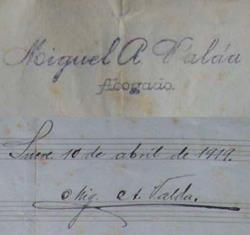 Miguel A Valda
Abogado.
Sucre. 10 de abril de 1919.
Mig. A. Valda.